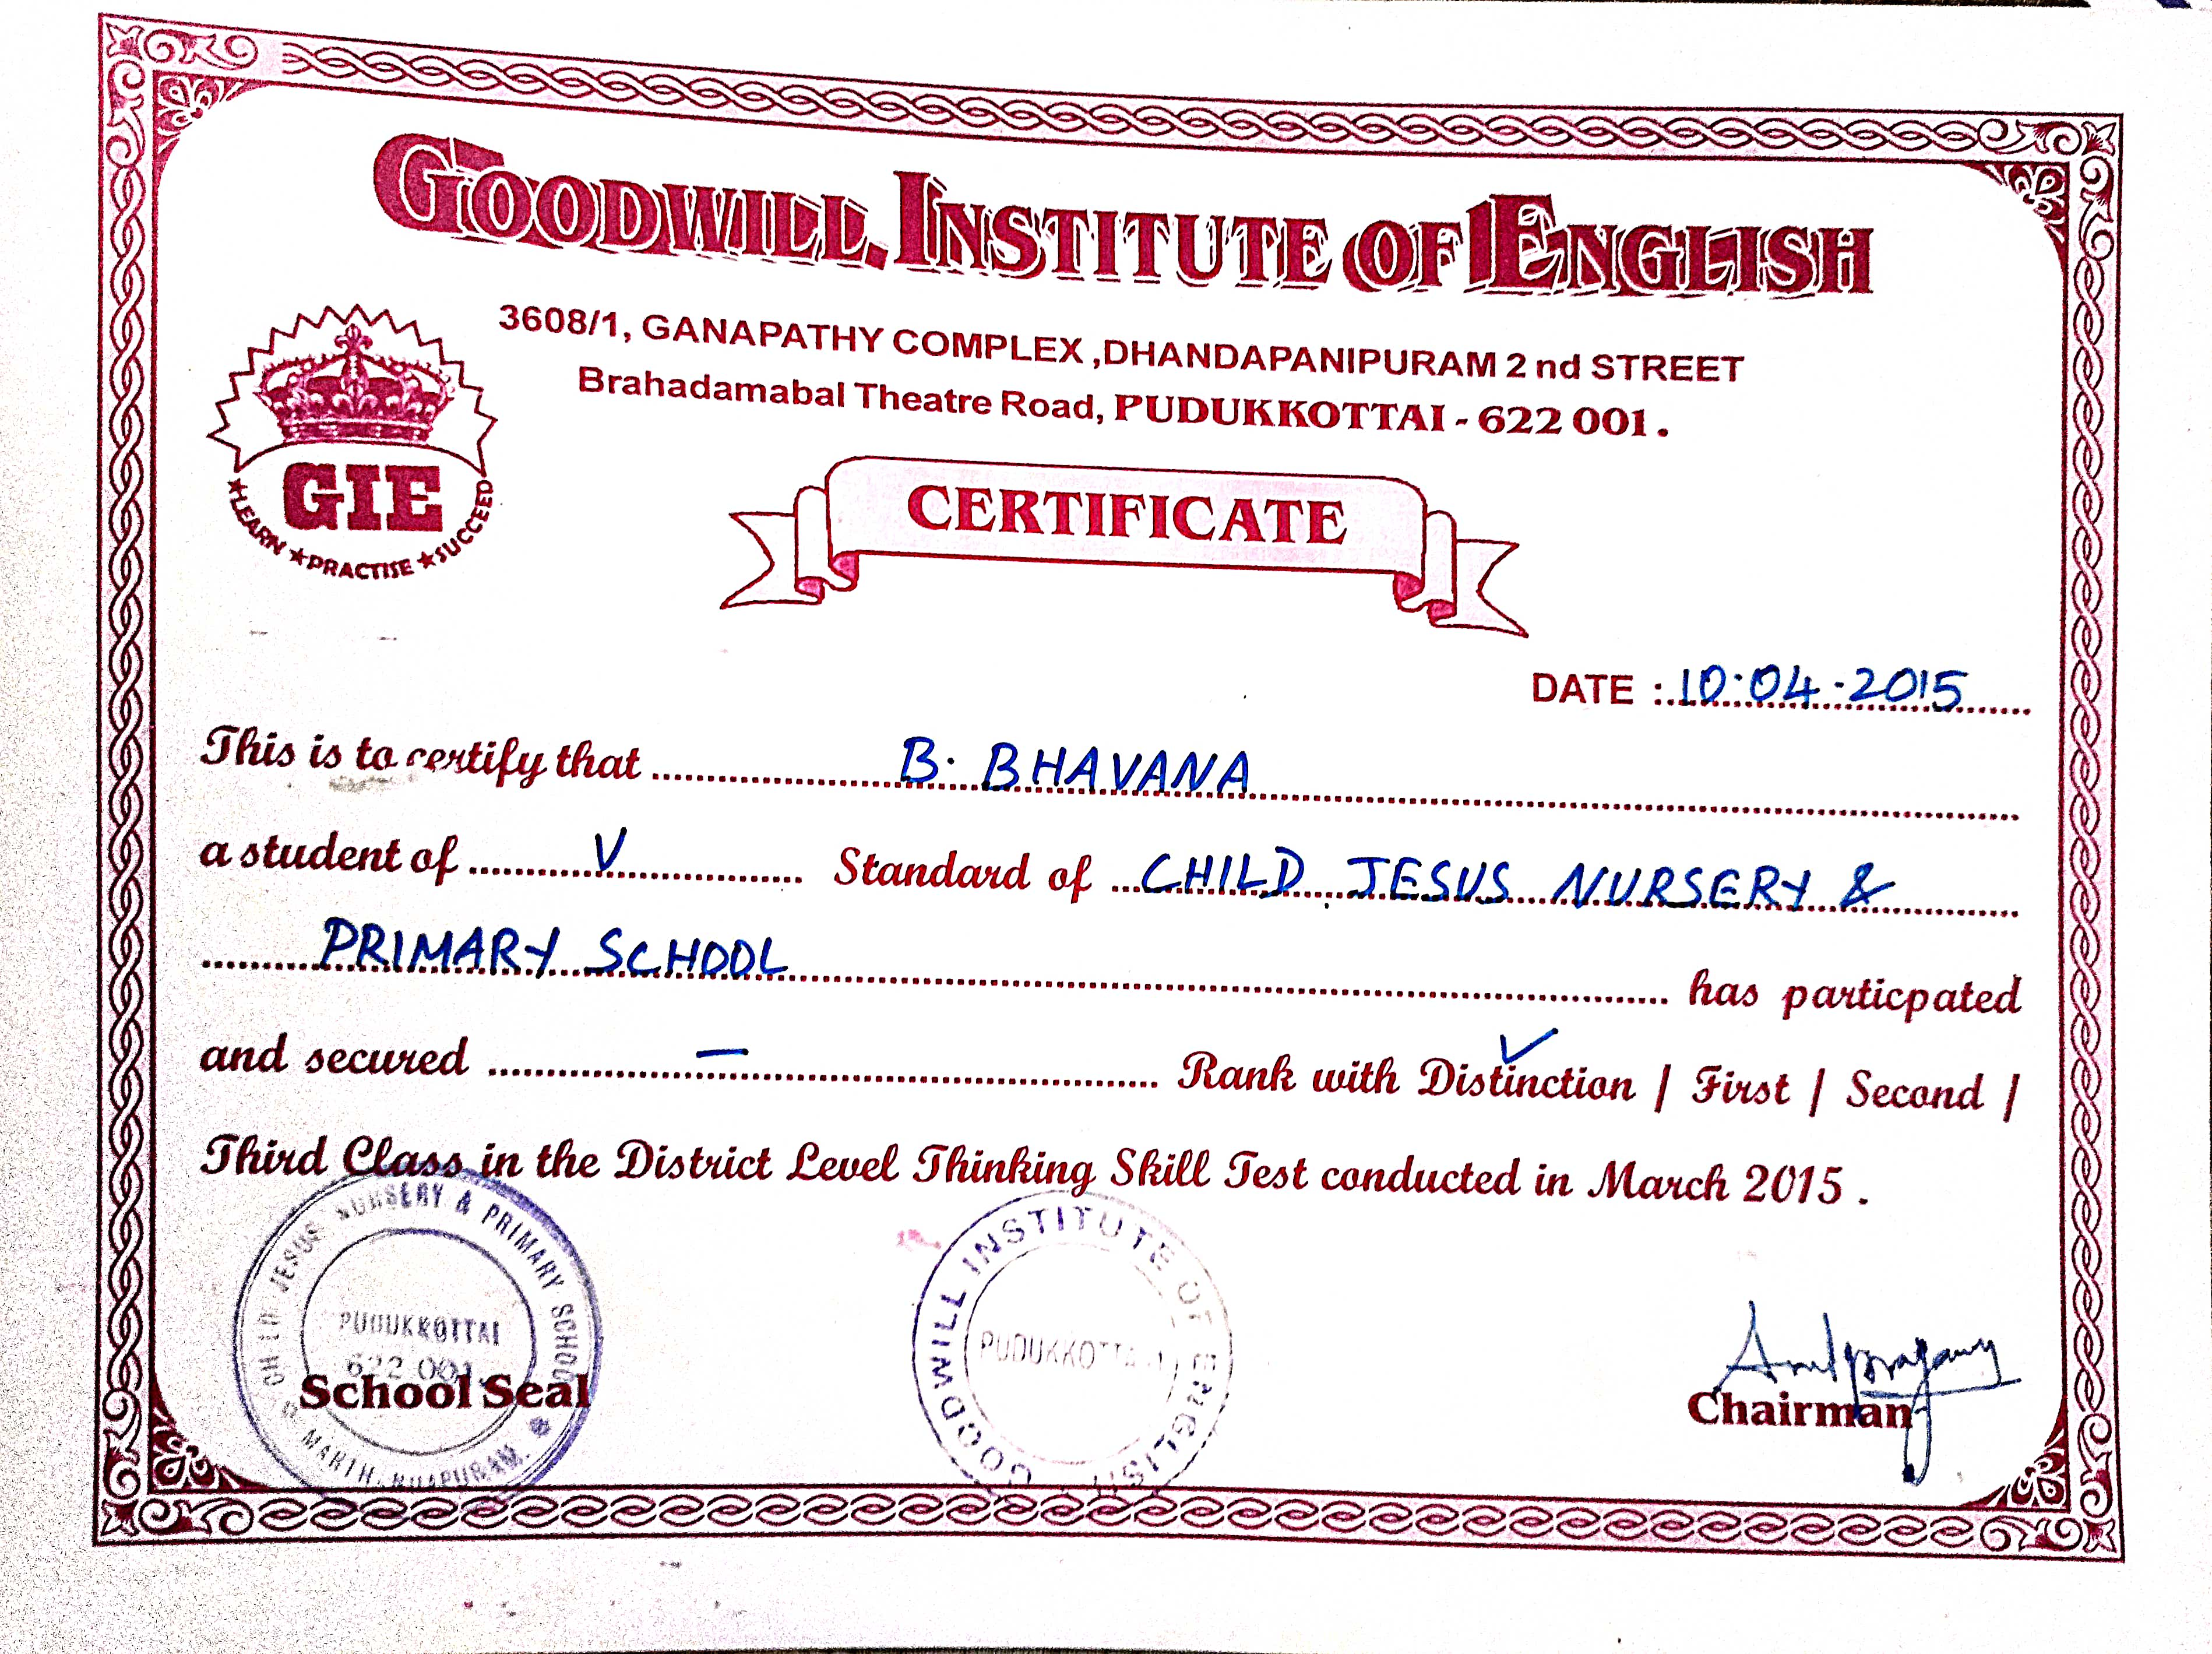 GOODWILL INSTITUTE OF ENGLISH
3608/1, GANAPATHY COMPLEX ,DHANDAPANIPURAM 2 nd STREET
Brahadamabal Theatre Road, PUDUKKOTTAI - 622 001 .
GIE
★LEARN ★PRACTISE ★SUCCEED
CERTIFICATE
DATE : 10·04·2015
This is to certify that B. BHAVANA
a student of V Standard of CHILD JESUS NURSERY &
PRIMARY SCHOOL has particpated
and secured — Rank with Distinction ✓ / First / Second /
Third Class in the District Level Thinking Skill Test conducted in March 2015 .
CHILD JESUS NURSERY & PRIMARY SCHOOL
PUDUKKOTTAI
622 001.
School Seal
GOODWILL INSTITUTE OF ENGLISH
PUDUKKOTTAI
Chairman